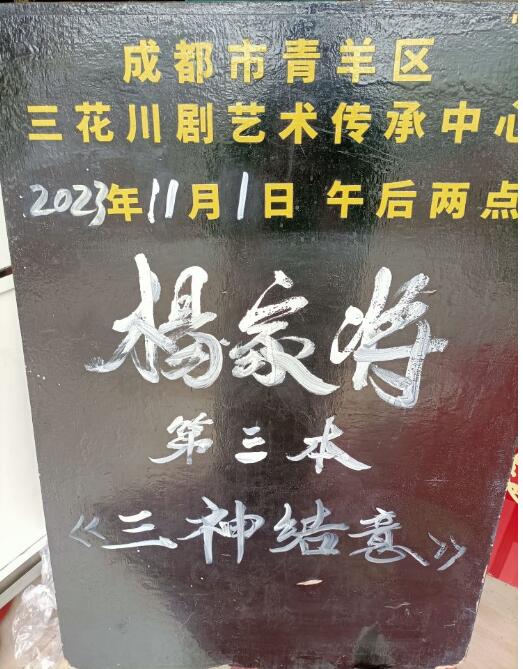 成都市青羊区
三花川剧艺术传承中心
2023年11月1日 午后两点
杨家将
第三本
《三神结意》